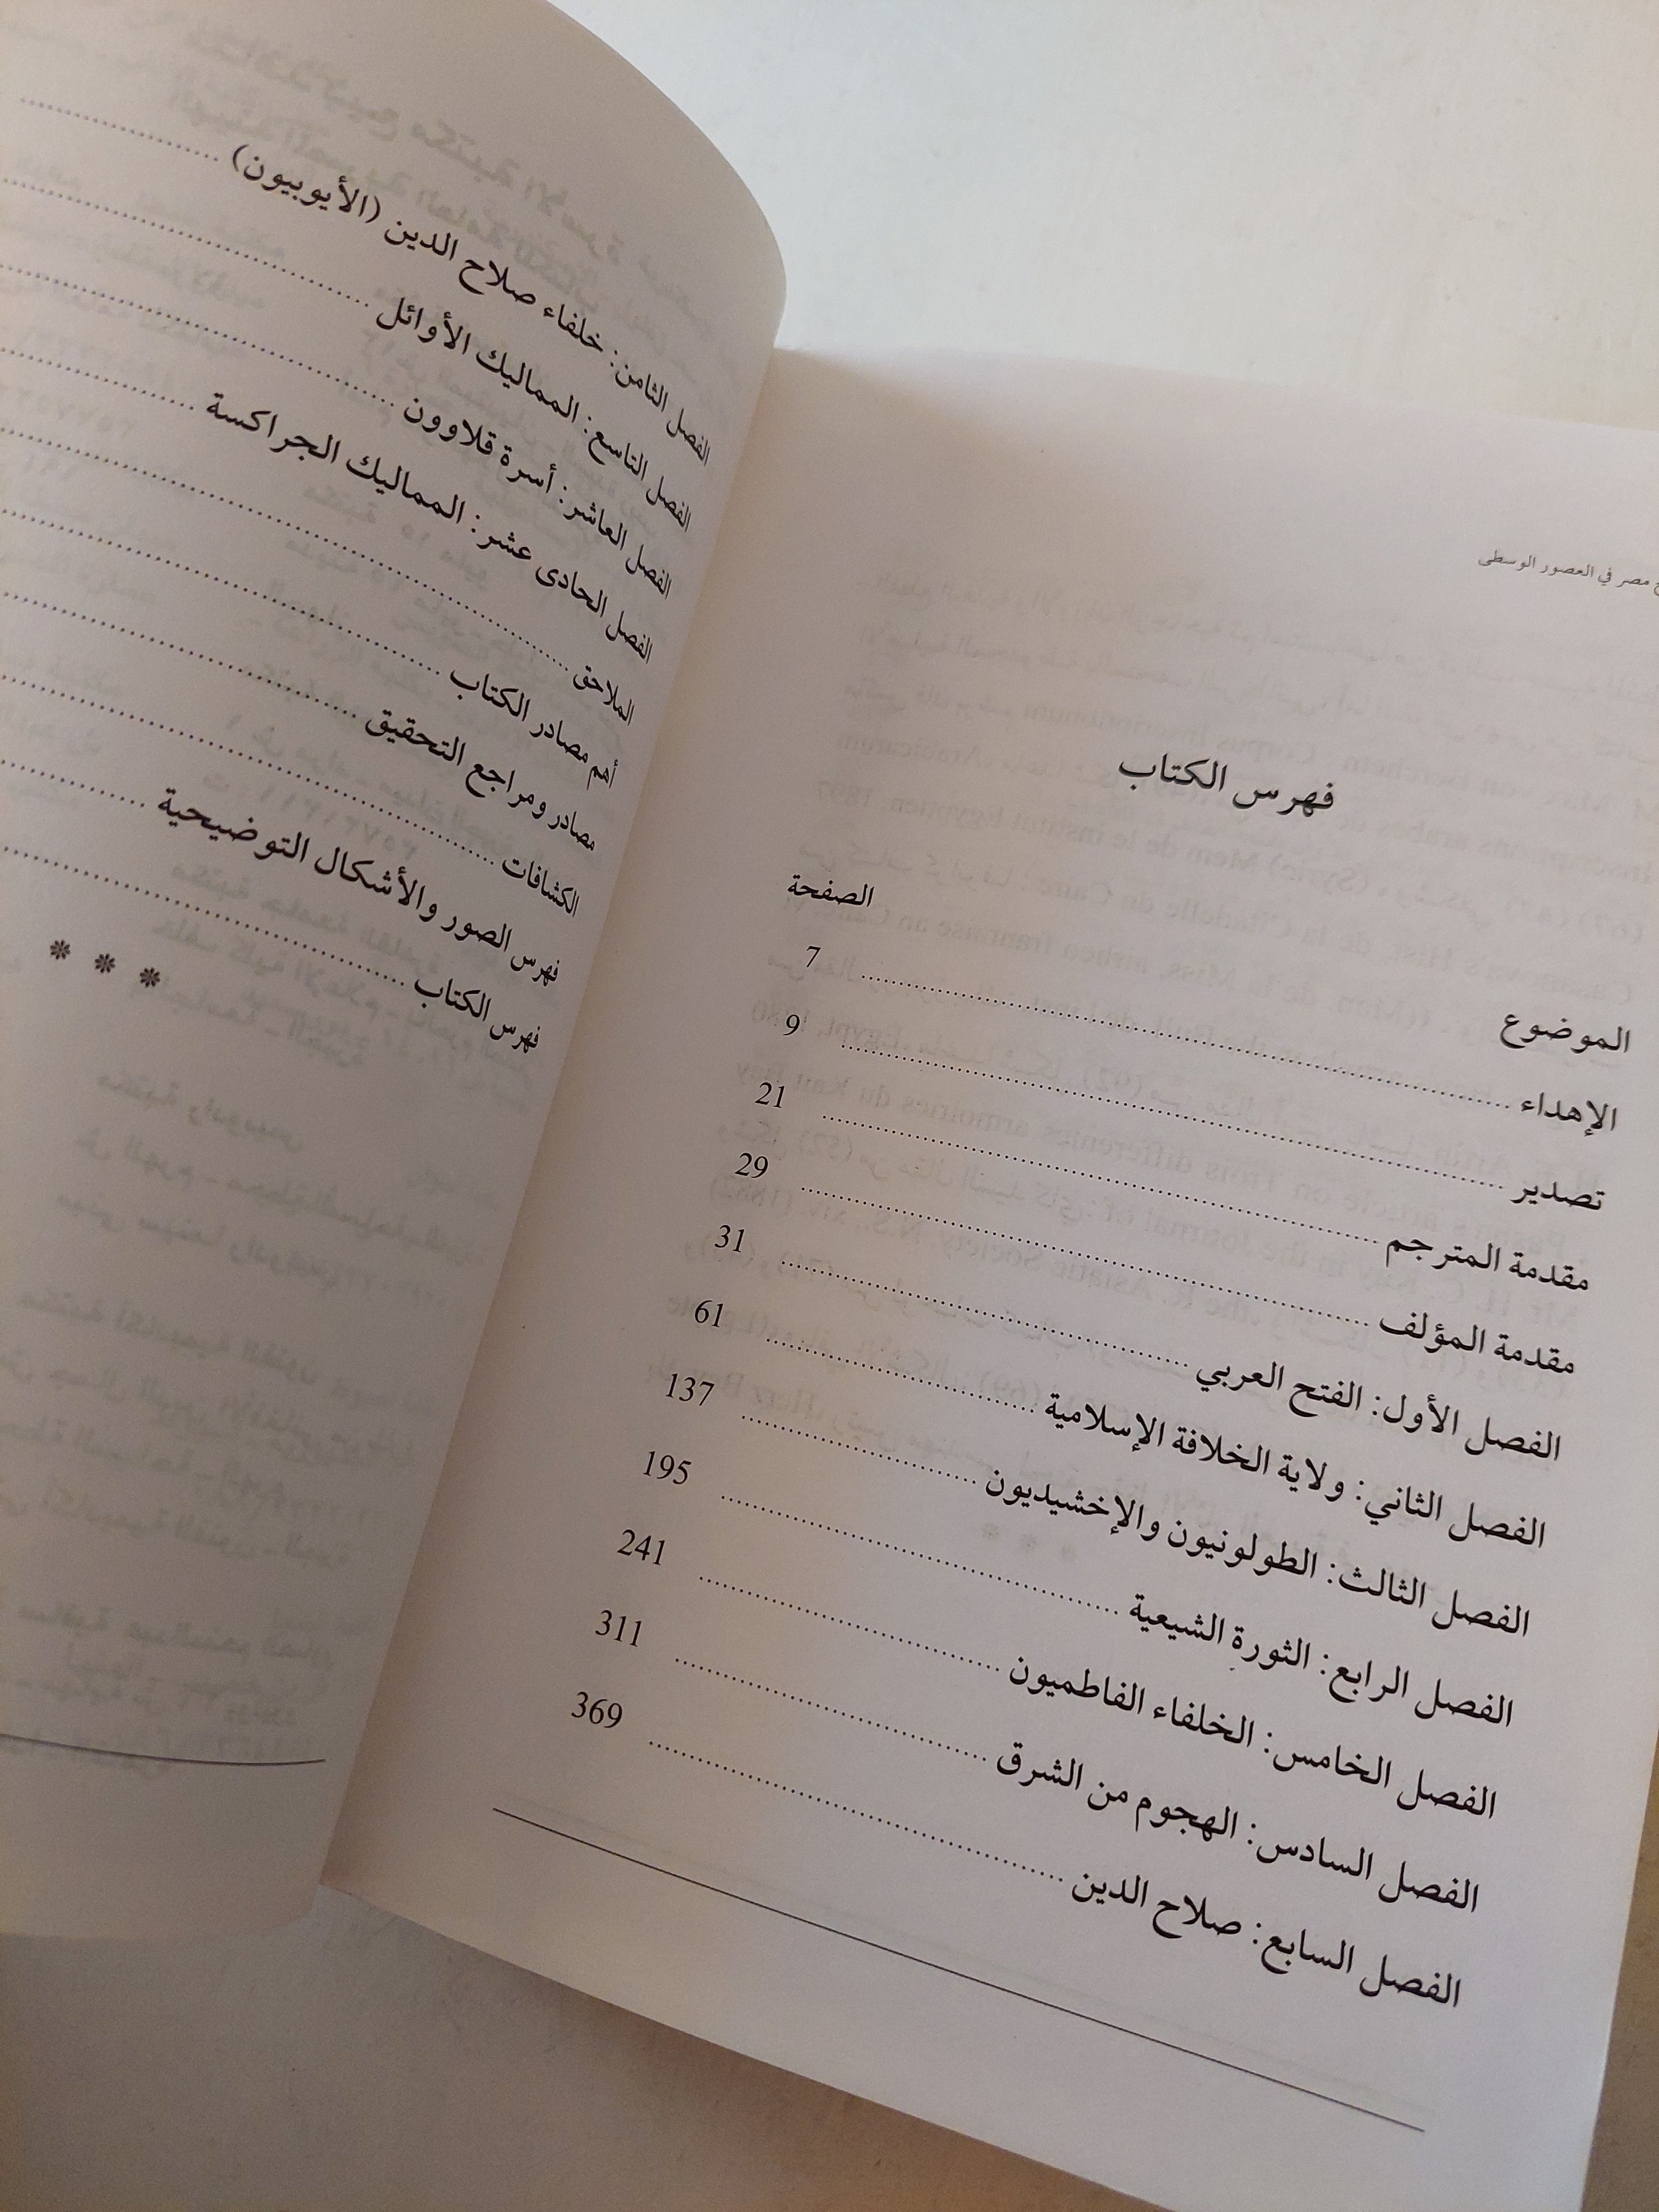 مصر في العصور الوسطى
فهرس الكتاب
الموضوع الصفحة
الإهداء 7
تصدير 9
مقدمة المترجم 21
مقدمة المؤلف 29
الفصل الأول: الفتح العربي 31
الفصل الثاني: ولاية الخلافة الإسلامية 61
الفصل الثالث: الطولونيون والإخشيديون 137
الفصل الرابع: الثورة الشيعية 195
الفصل الخامس: الخلفاء الفاطميون 241
الفصل السادس: الهجوم من الشرق 311
الفصل السابع: صلاح الدين 369
الفصل الثامن: خلفاء صلاح الدين (الأيوبيون)
الفصل التاسع: المماليك الأوائل
الفصل العاشر: أسرة قلاوون
الفصل الحادى عشر: المماليك الجراكسة
الملاحق
أهم مصادر الكتاب
مصادر ومراجع التحقيق
الكشافات
فهرس الصور والأشكال التوضيحية
فهرس الكتاب
* * *